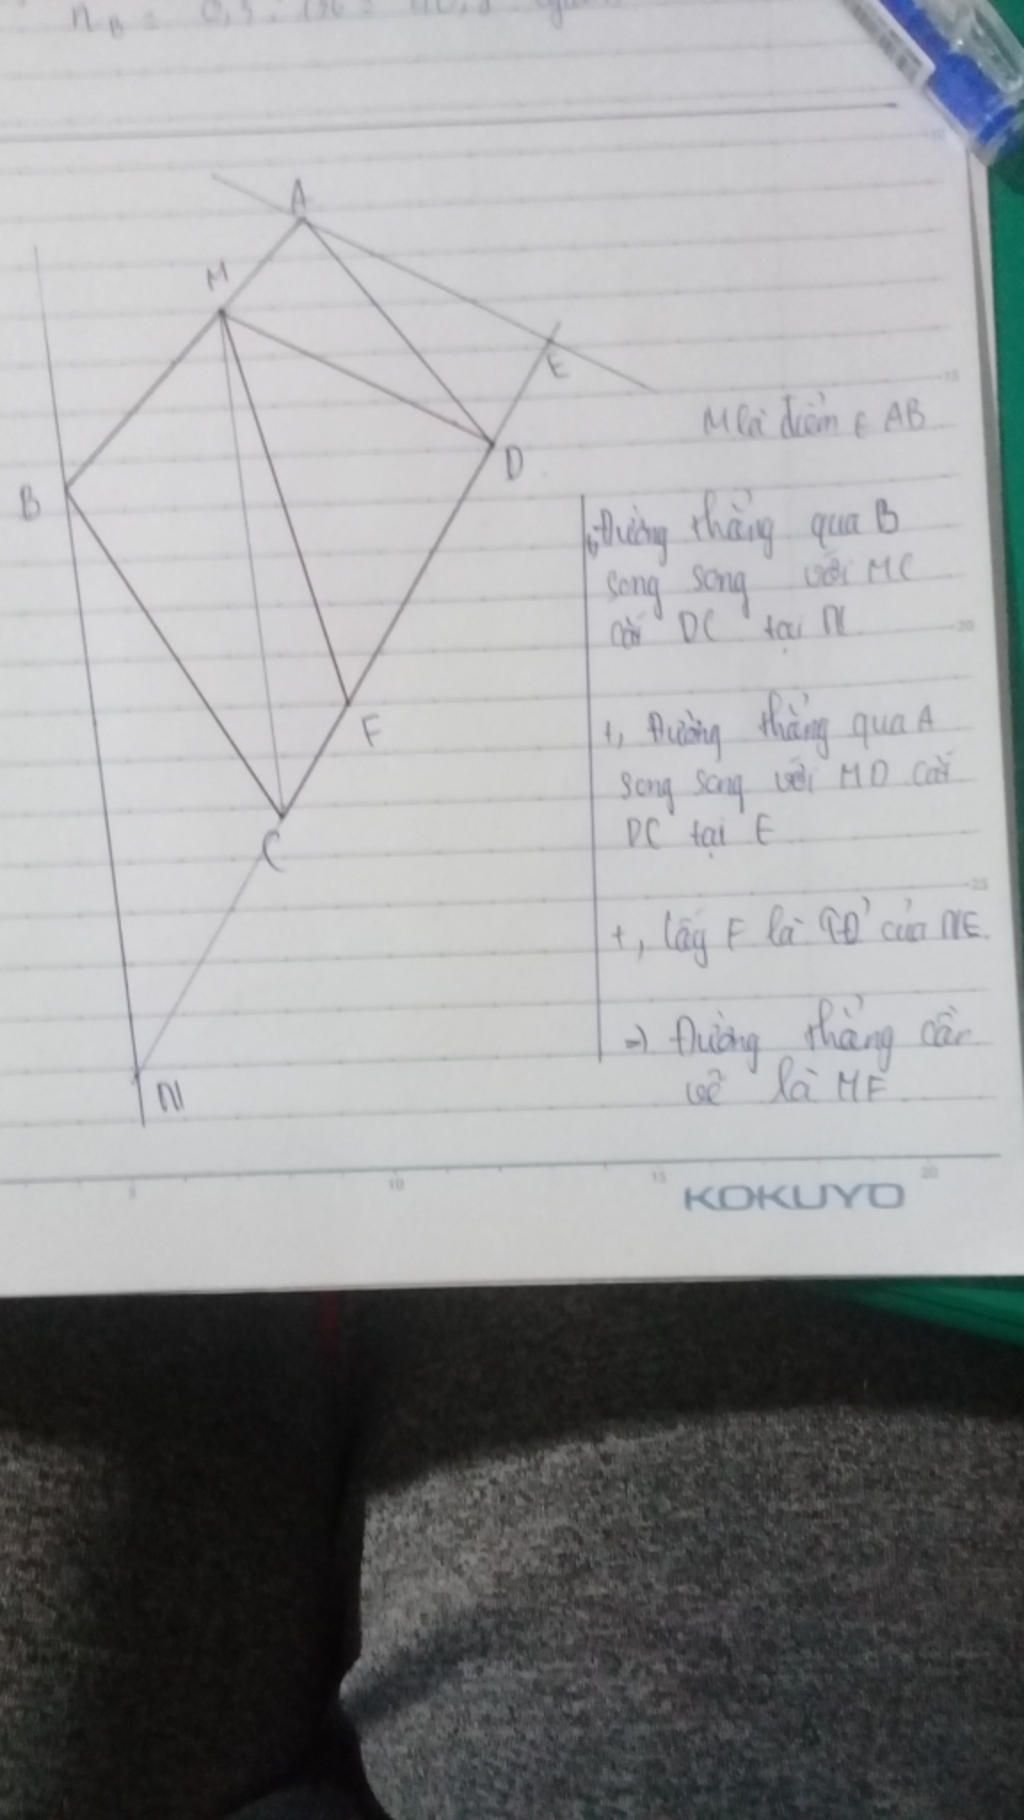 A
M
E
B
D
F
C
N
M là điểm ∈ AB
+, Đường thẳng qua B
song song với MC
cắt DC tại N
+, Đường thẳng qua A
song song với MD cắt
DC tại E
+, lấy F là TĐ của NE.
=) Đường thẳng cần
vẽ là MF
5
10
15
20
15
20
25
KOKUYO